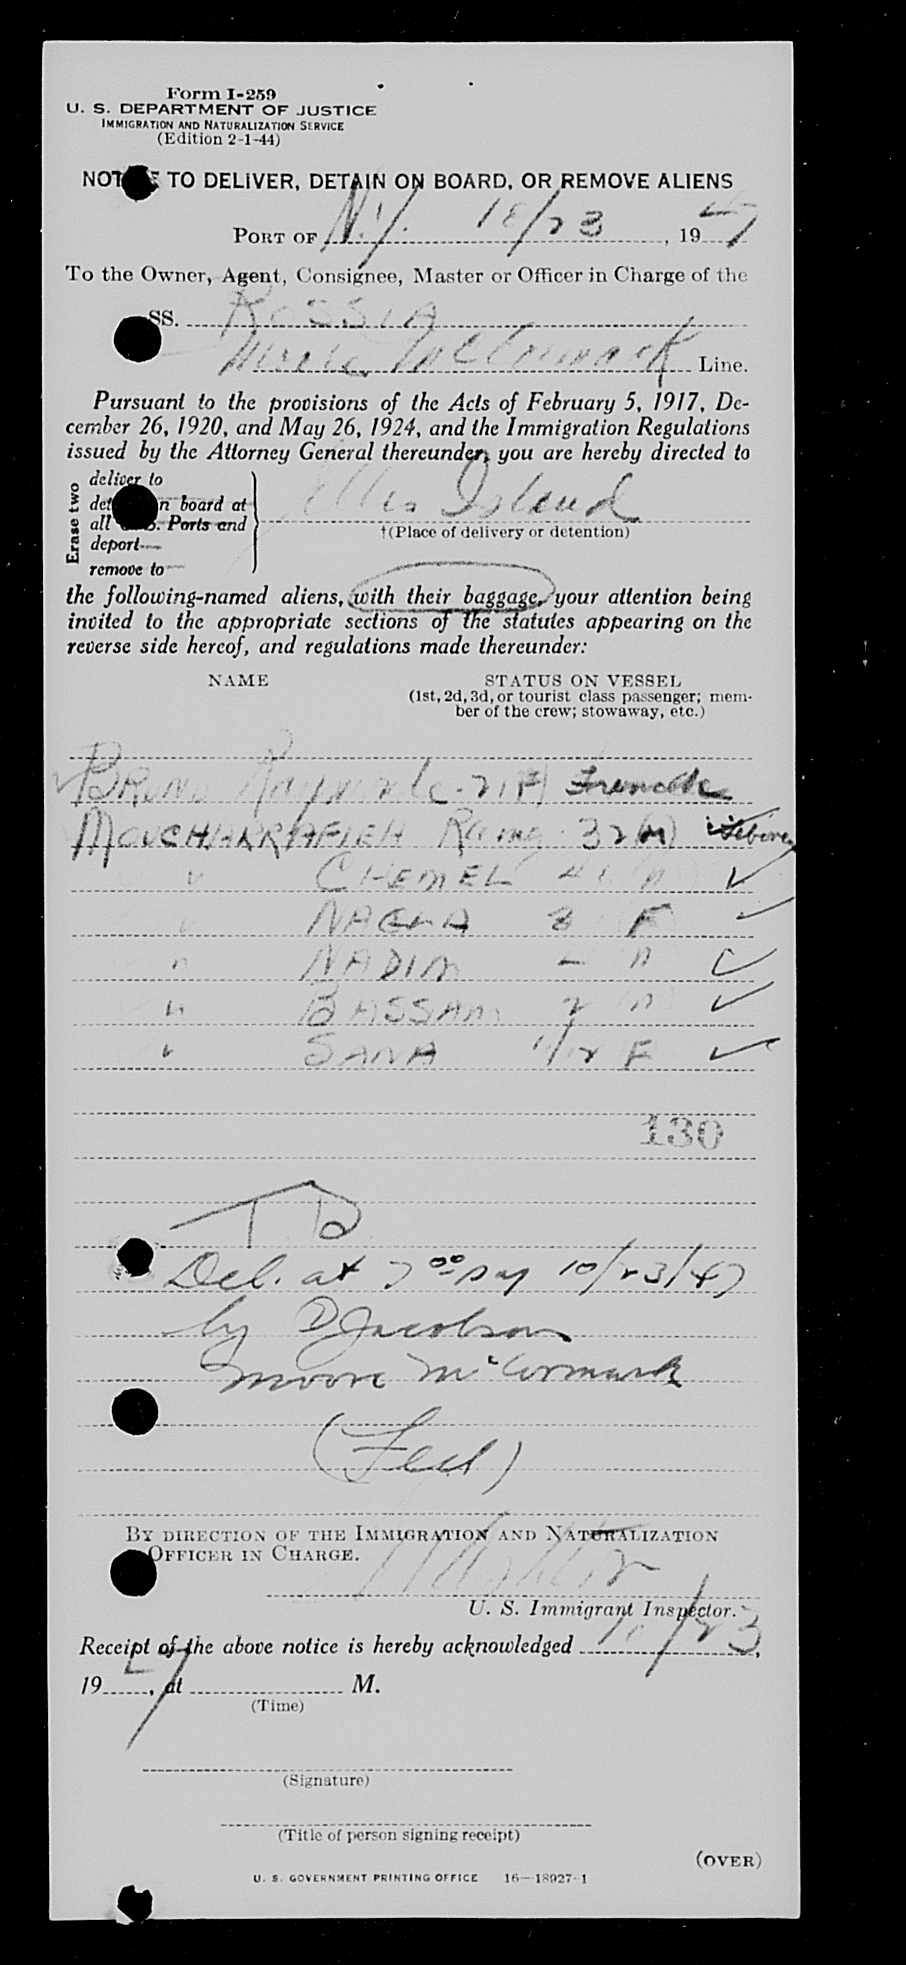 Form I-259
U. S. DEPARTMENT OF JUSTICE
IMMIGRATION AND NATURALIZATION SERVICE
(Edition 2-1-44)
TO DELIVER, DETAIN ON BOARD, OR REMOVE ALIENS
PORT OF N.Y. 10/23, 1947
To the Owner, Agent, Consignee, Master or Officer in Charge of the
SS. ROSSIA
McCormack Line.
Pursuant to the provisions of the Acts of February 5, 1917, De-
cember 26, 1920, and May 26, 1924, and the Immigration Regulations
issued by the Attorney General thereunder, you are hereby directed to
Erase two
deliver to
on board at
all Ports and
deport
remove to
Ellis Island
†(Place of delivery or detention)
the following-named aliens, with their baggage, your attention being
invited to the appropriate sections of the statutes appearing on the
reverse side hereof, and regulations made thereunder:
NAME STATUS ON VESSEL
(1st, 2d, 3d, or tourist class passenger; mem-
ber of the crew; stowaway, etc.)
21 F French
MOUCHARRAFIEH 32 (M)
" CHEMEL M ✓
" NAGLA F ✓
" NADIM - M ✓
" BASSAM 2 M ✓
" SANA 11/12 F ✓
130
Del. at 7 00 10/23/47
by D Jacobson
Moore McCormack
BY DIRECTION OF THE IMMIGRATION AND NATURALIZATION
OFFICER IN CHARGE.
U. S. Immigrant Inspector.
Receipt of the above notice is hereby acknowledged /23,
1947, at M.
(Time)
(Signature)
(Title of person signing receipt)
(OVER)
U. S. GOVERNMENT PRINTING OFFICE 16—18927-1